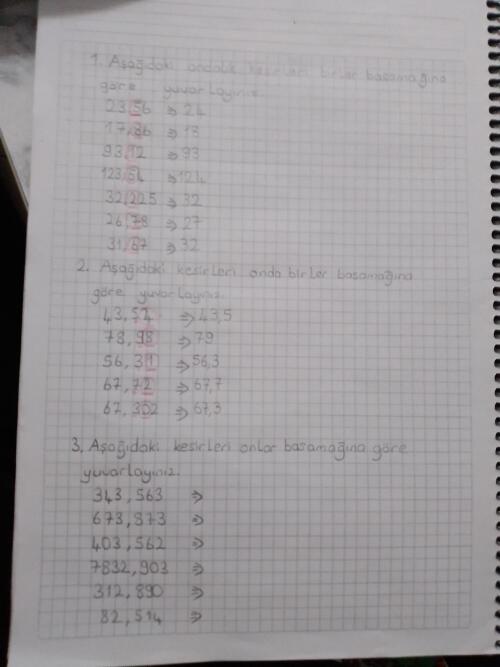 1. Aşağıdaki ondalık kesirleri birler basamağına
göre yuvarlayınız.
23,56 ⇒ 24
17,86 ⇒ 18
93,12 ⇒ 93
123,54 ⇒ 124
32,225 ⇒ 32
26,78 ⇒ 27
31,67 ⇒ 32
2. Aşağıdaki kesirleri onda birler basamağına
göre yuvarlayınız.
43,52 ⇒ 43,5
78,98 ⇒ 79
56,31 ⇒ 56,3
67,72 ⇒ 67,7
67,302 ⇒ 67,3
3. Aşağıdaki kesirleri onlar basamağına göre
yuvarlayınız.
343,563 ⇒
673,873 ⇒
403,562 ⇒
7832,903 ⇒
312,890 ⇒
82,514 ⇒